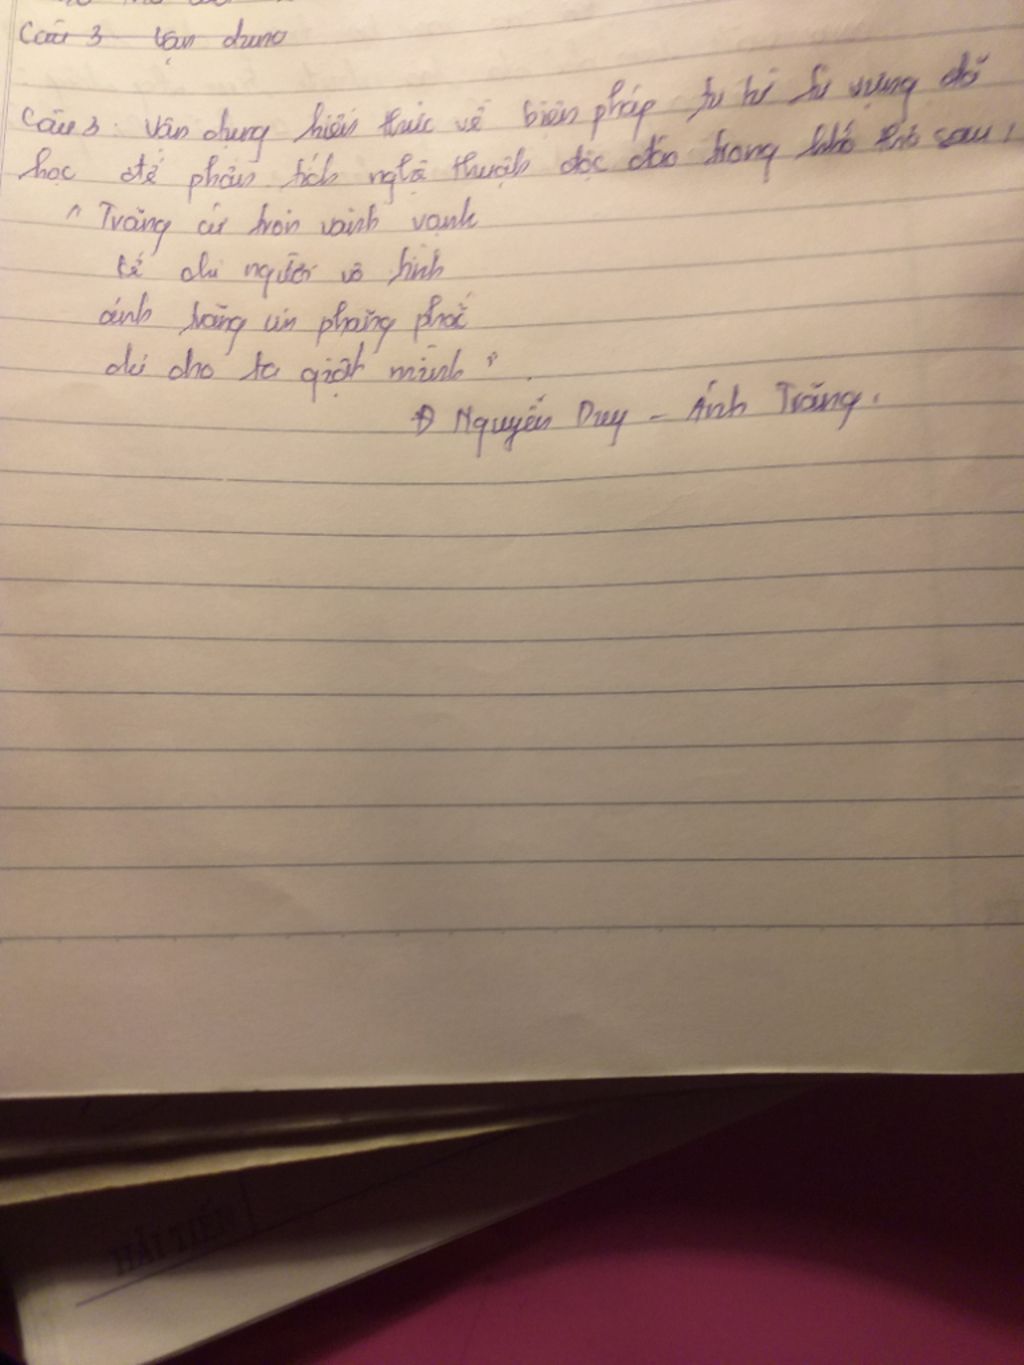 Câu 3 Vận dung
Câu 3: Vận dụng kiến thức về biện pháp tu từ từ vựng đã
học để phân tích nghệ thuật độc đáo trong khổ thơ sau:
" Trăng cứ tròn vành vạnh
kể chi người vô tình
ánh trăng im phăng phắc
đủ cho ta giật mình "
Nguyễn Duy - Ánh Trăng.
HẢI TIẾN